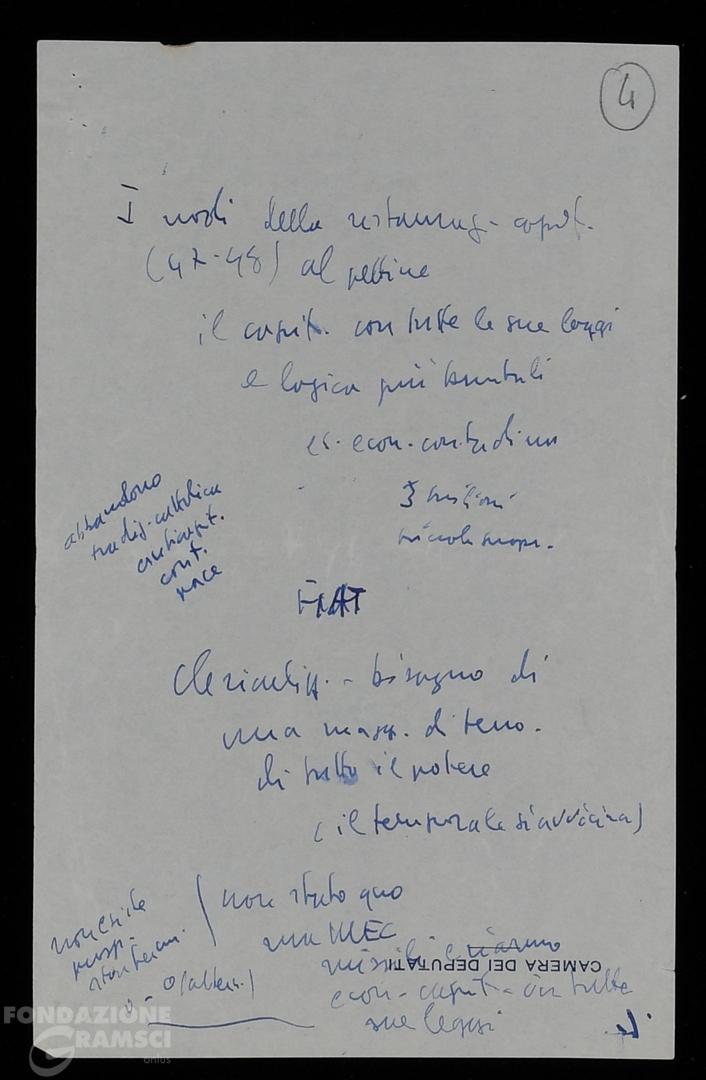 4
I nodi della restauraz. capit.
(47-48) al pettine
il capit. con tutte le sue leggi
e logica più brutali
es. econ. contadina
3 milioni
piccole propr.
abbandono
tradiz. cattolica
anticapit.
cont.
pace
FIAT
Clericalizz. - bisogno di
una magg. di
di tutto il potere
(il temporale si avvicina)
non esiste
prosp.
non statu quo
ma MEC
missili e riarmo
CAMERA DEI DEPUTATI
o - o (altern.)
econ. capit. - in tutte
sue leggi
FONDAZIONE
GRAMSCI
onlus